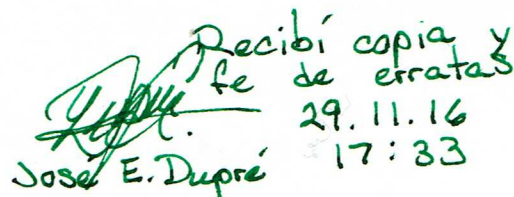 Recibí copia y
fe de erratas
29.11.16
17:33
José E. Dupré